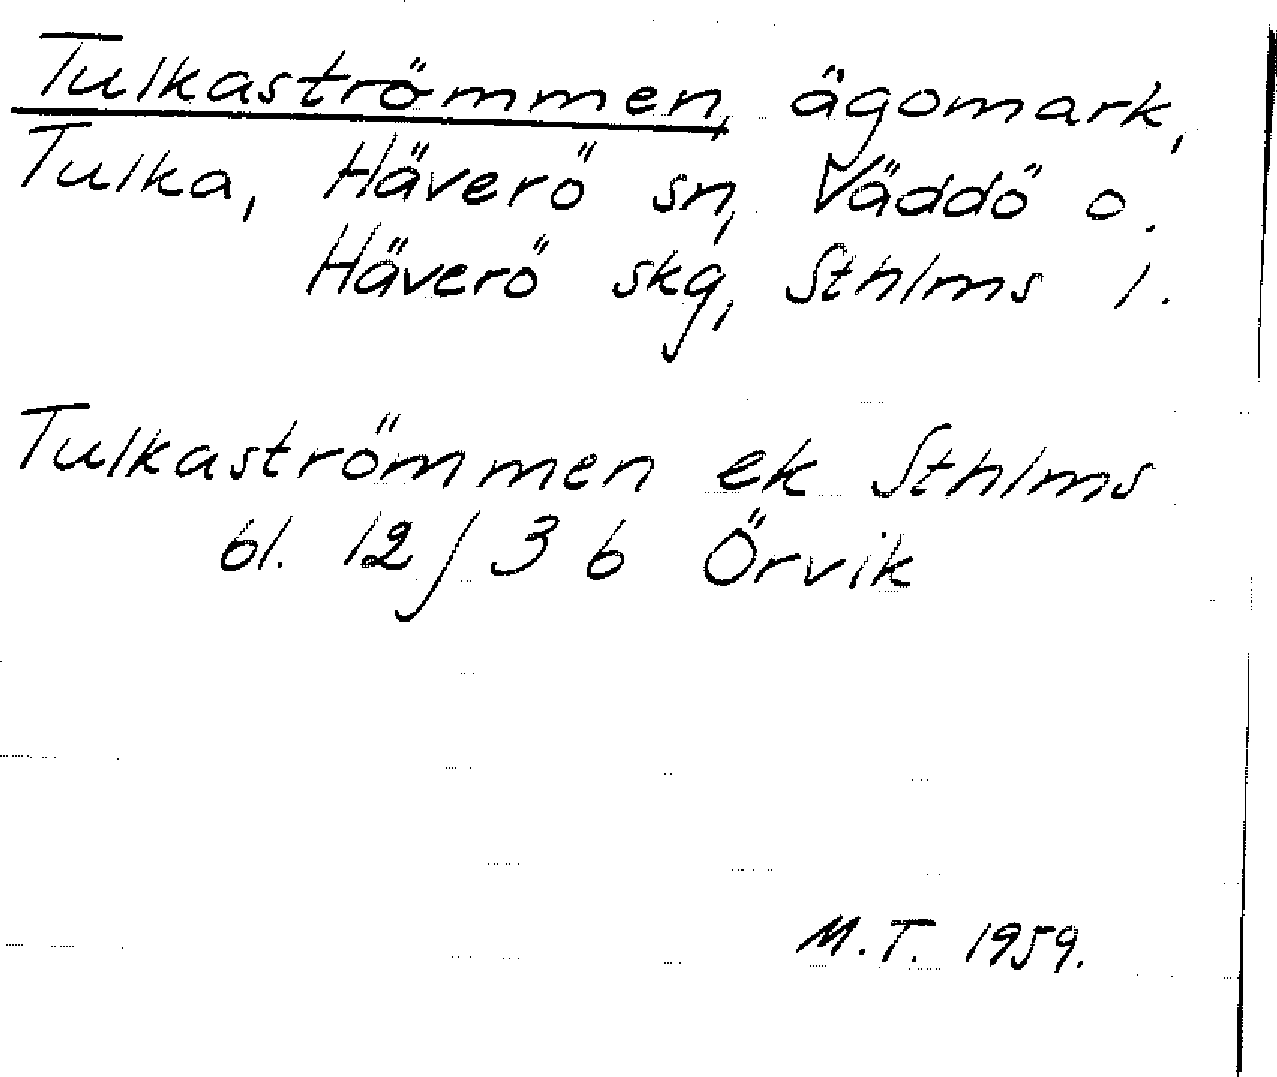 Tulkaströmmen, ägomark,
Tulka, Häverö sn, Väddö o.
Häverö skg, Sthlms l.
Tulkaströmmen ek Sthlms
bl. 12/3 b Örvik
M.T. 1959.